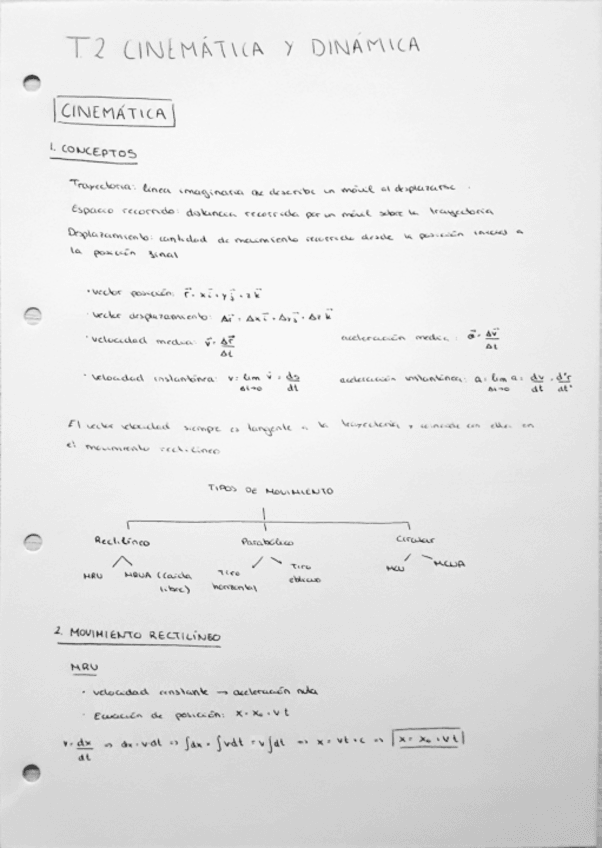 T.2 CINEMÁTICA Y DINÁMICA
CINEMÁTICA
1. CONCEPTOS
Trayectoria: línea imaginaria que describe un móvil al desplazarse.
Espacio recorrido: distancia recorrida por un móvil sobre la trayectoria
Desplazamiento: cantidad de movimiento recorrido desde la posición inicial a
la posición final
· vector posición: r⃗ = xi⃗ + yj⃗ + zk⃗
· vector desplazamiento: Δr⃗ = Δxi⃗ + Δyj⃗ + Δzk⃗
· velocidad media: v⃗ = Δr⃗/Δt aceleración media: a⃗ = Δv⃗/Δt
· velocidad instantánea: v = lim Δt→0 v⃗ = ds/dt aceleración instantánea: a = lim Δt→0 a = dv/dt = d²r/dt²
El vector velocidad siempre es tangente a la trayectoria y coincide con ella en
el movimiento rectilíneo
TIPOS DE MOVIMIENTO
Rectilíneo Parabólico Circular
MRU MRUA (caída libre) Tiro horizontal Tiro oblicuo MCU MCUA
2. MOVIMIENTO RECTILÍNEO
MRU
· velocidad constante → aceleración nula
· Ecuación de posición: x = x₀ + vt
v = dx/dt ⇒ dx = vdt ⇒ ∫dx = ∫vdt = v∫dt ⇒ x = vt + c ⇒ x = x₀ + vt